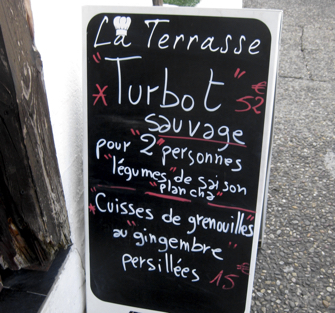 La Terrasse
"Turbot" €
* 52
sauvage
pour "2" personnes
"légumes" de saison
"plancha"
* Cuisses de grenouilles"
au "gingembre"
persillées 15€